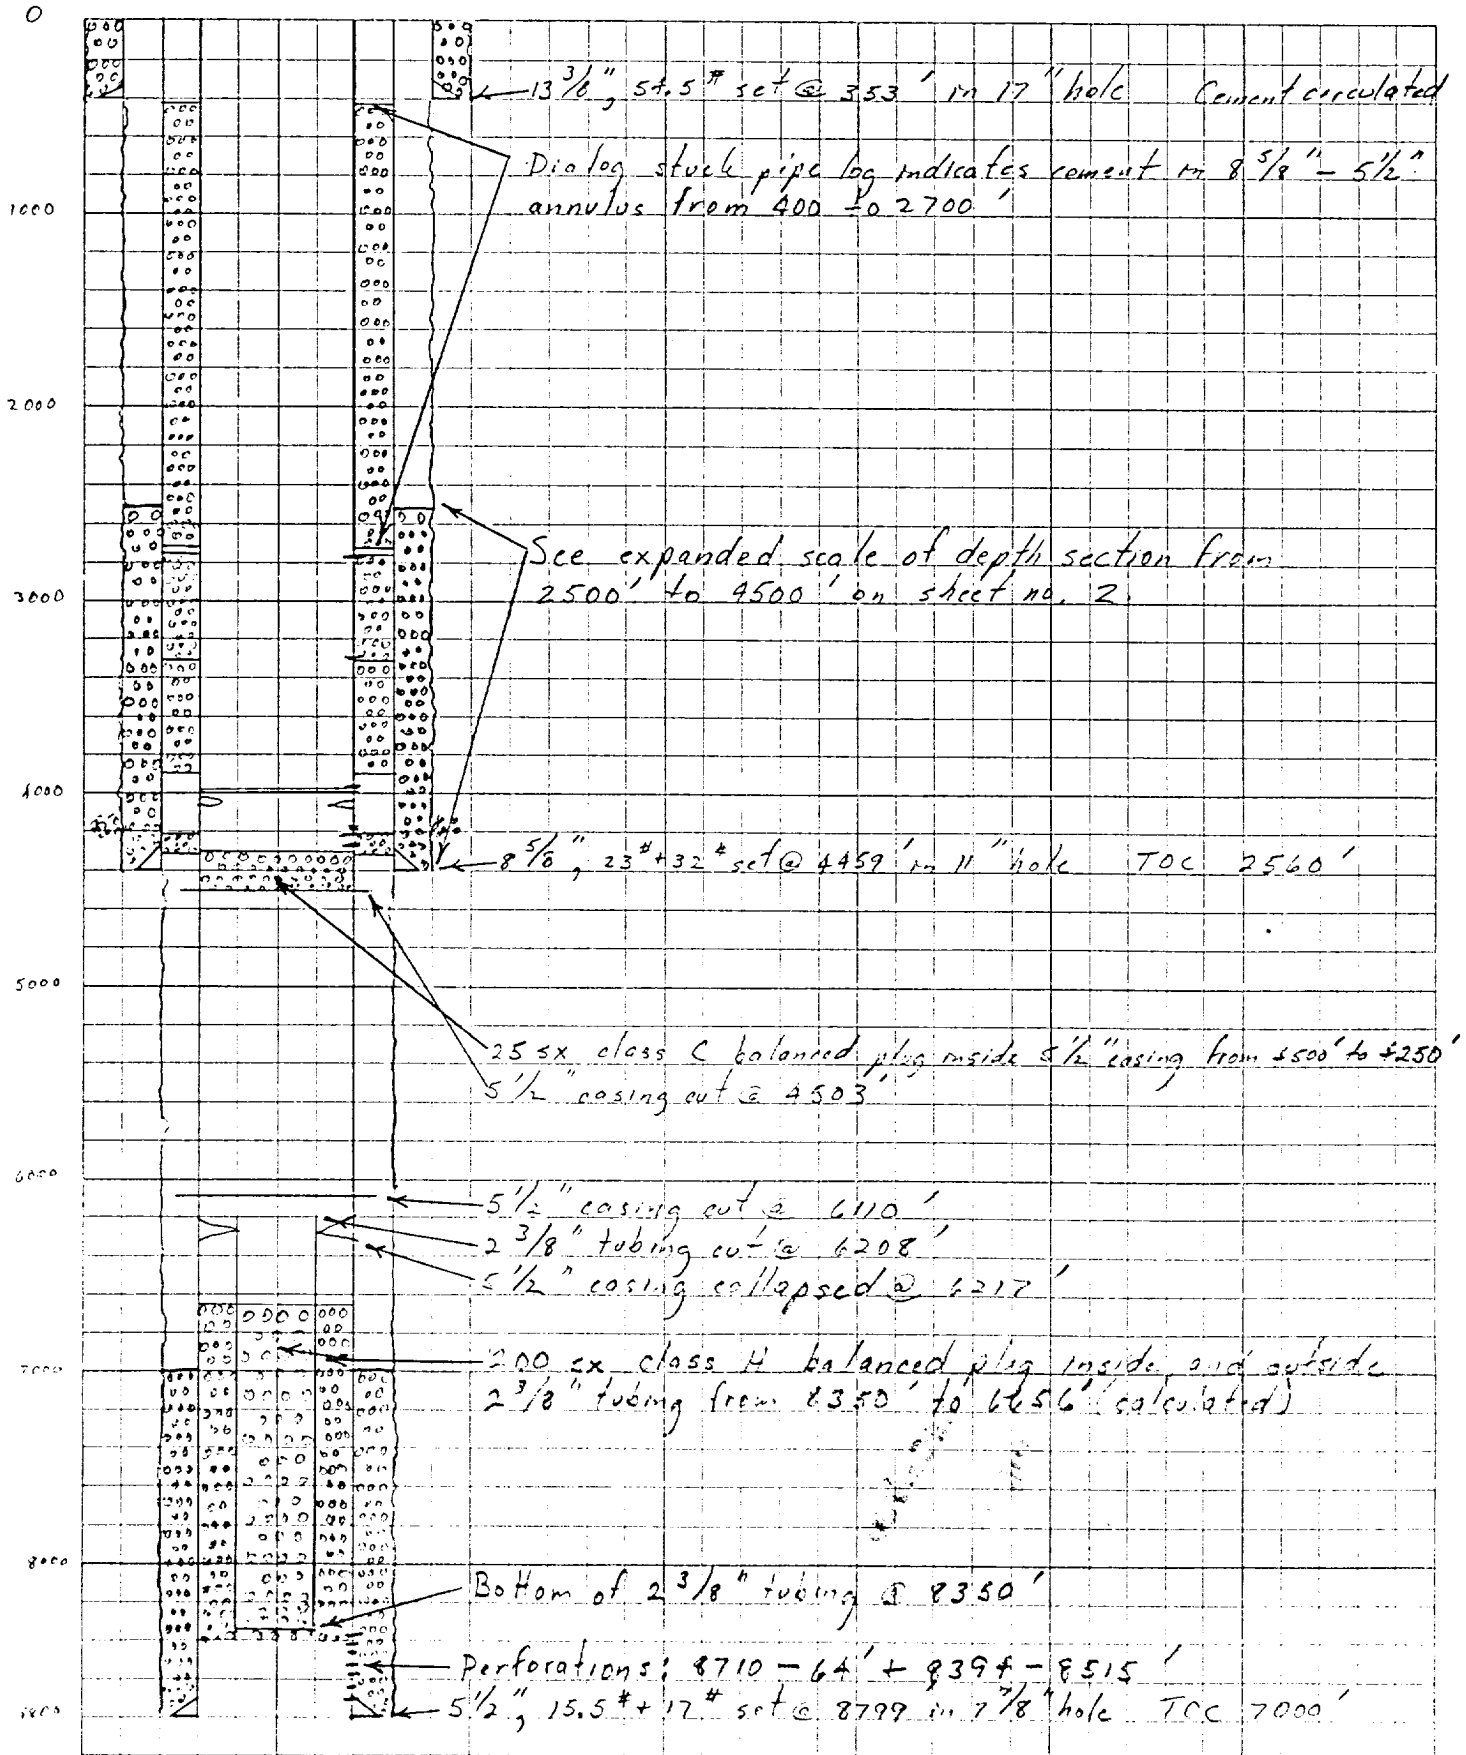 0
13 3/8", 54.5# set @ 353' in 17" hole Cement circulated
Dialog stuck pipe log indicates cement in 8 5/8" - 5 1/2"
annulus from 400 to 2700'
1000
2000
See expanded scale of depth section from
2500' to 4500' on sheet no. 2.
3000
4000
8 5/8", 23# + 32# set @ 4459' in 11" hole TOC 2560'
5000
25 sx class C balanced plug inside 5 1/2" casing from 4500' to 4250'
5 1/2" casing cut @ 4503'
6000
5 1/2" casing cut @ 6110'
2 3/8" tubing cut @ 6208'
5 1/2" casing collapsed @ 6217'
200 sx class H balanced plug inside and outside
7000
2 3/8" tubing from 8350' to 6656' (calculated)
8000
Bottom of 2 3/8" tubing @ 8350'
Perforations: 8710 - 64' + 8394 - 8515'
5 1/2", 15.5# + 17# set @ 8799 in 7 7/8" hole TOC 7000'